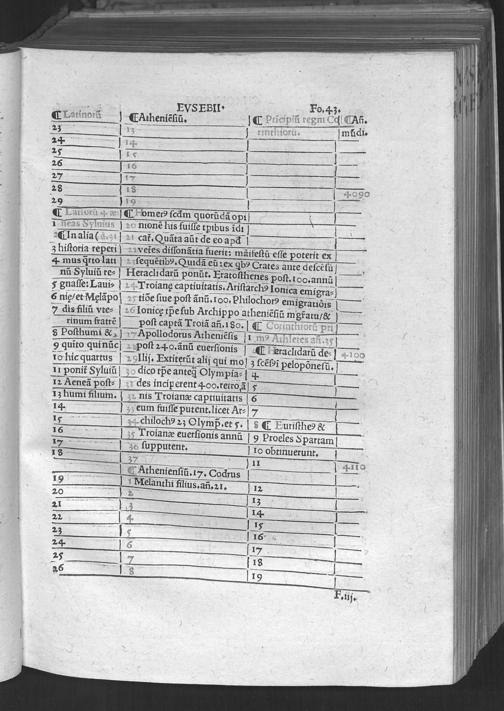 EVSEBII. Fo.43.
¶ Latinorū ¶Atheniēsiū. ¶ Pricipiū regni Co ¶Añ.
23 13 rinthiorū. mūdi.
24 14
25 15
26 16
27 17
28 18 4090
29 19
¶ Latiorū 4. æ ¶ Homerꝰ scđm quorūdā opi
1 neas Syluius 20 nionē his fuisse tp̄ibus īdi
2 ¶ In alia 21 cat̄. Quāta aūt de eo apđ
3 historia reperi 22 veteς dissonātia fuerit: māifestū esse poterit ex
4 mus q̄rto lati 23 sequētibꝰ. Quidā eū: ex qbꝰ Crates ante descēsū
nū Syluiū re- Heraclidarū ponūt. Eratosthenes post.100.annū
5 gnasse: Laui- 24 Troianę captiuitatis. Aristarchꝰ Ionica emigra-
6 nię/et Mełāpo 25 tiōe siue post ānū.100. Philochorꝰ emigratiōis
7 dis filiū vte- 26 Ionicę tp̄e sub Archippo atheniēsiū mgr̄atu/&
rinum fratrē post captā Troiā añ.180. ¶ Corinthiorū pri
8 Posthumi &, 27 Apollodorus Atheniēsis 1 mꝰ Alethes añ.35
9 quito qui nūc 28 post 240.ānū euersionis 2 ¶ Heraclidarū de- 4100
10 hic quartus 29 Ilij. Extiterūt alij qui mo 3 scēsꝰi peloponēsū.
11 ponit̄ Syluiū 30 dico tp̄e anteq̄ Olympia- 4
12 Aeneā post- 31 des inciperent 400.retro, 5
13 humi filium. 32 nis Troianæ captiuitatis 6
14 33 eum fuisse putent.licet Ar- 7
15 34 chilochꝰ 23 Olymp̄.et 5. 8 ¶ Euristheꝰ &
16 35 Troianæ euersionis annū 9 Procles Spartam
17 36 supputent. 10 obtinuerunt.
18 37 11 4110
¶ Atheniensiū.17. Codrus
19 1 Melanthi filius.añ.21. 12
20 2 13
21 3 14
22 4 15
23 5 16
24 6 17
25 7 18
26 8 19
F.iij.